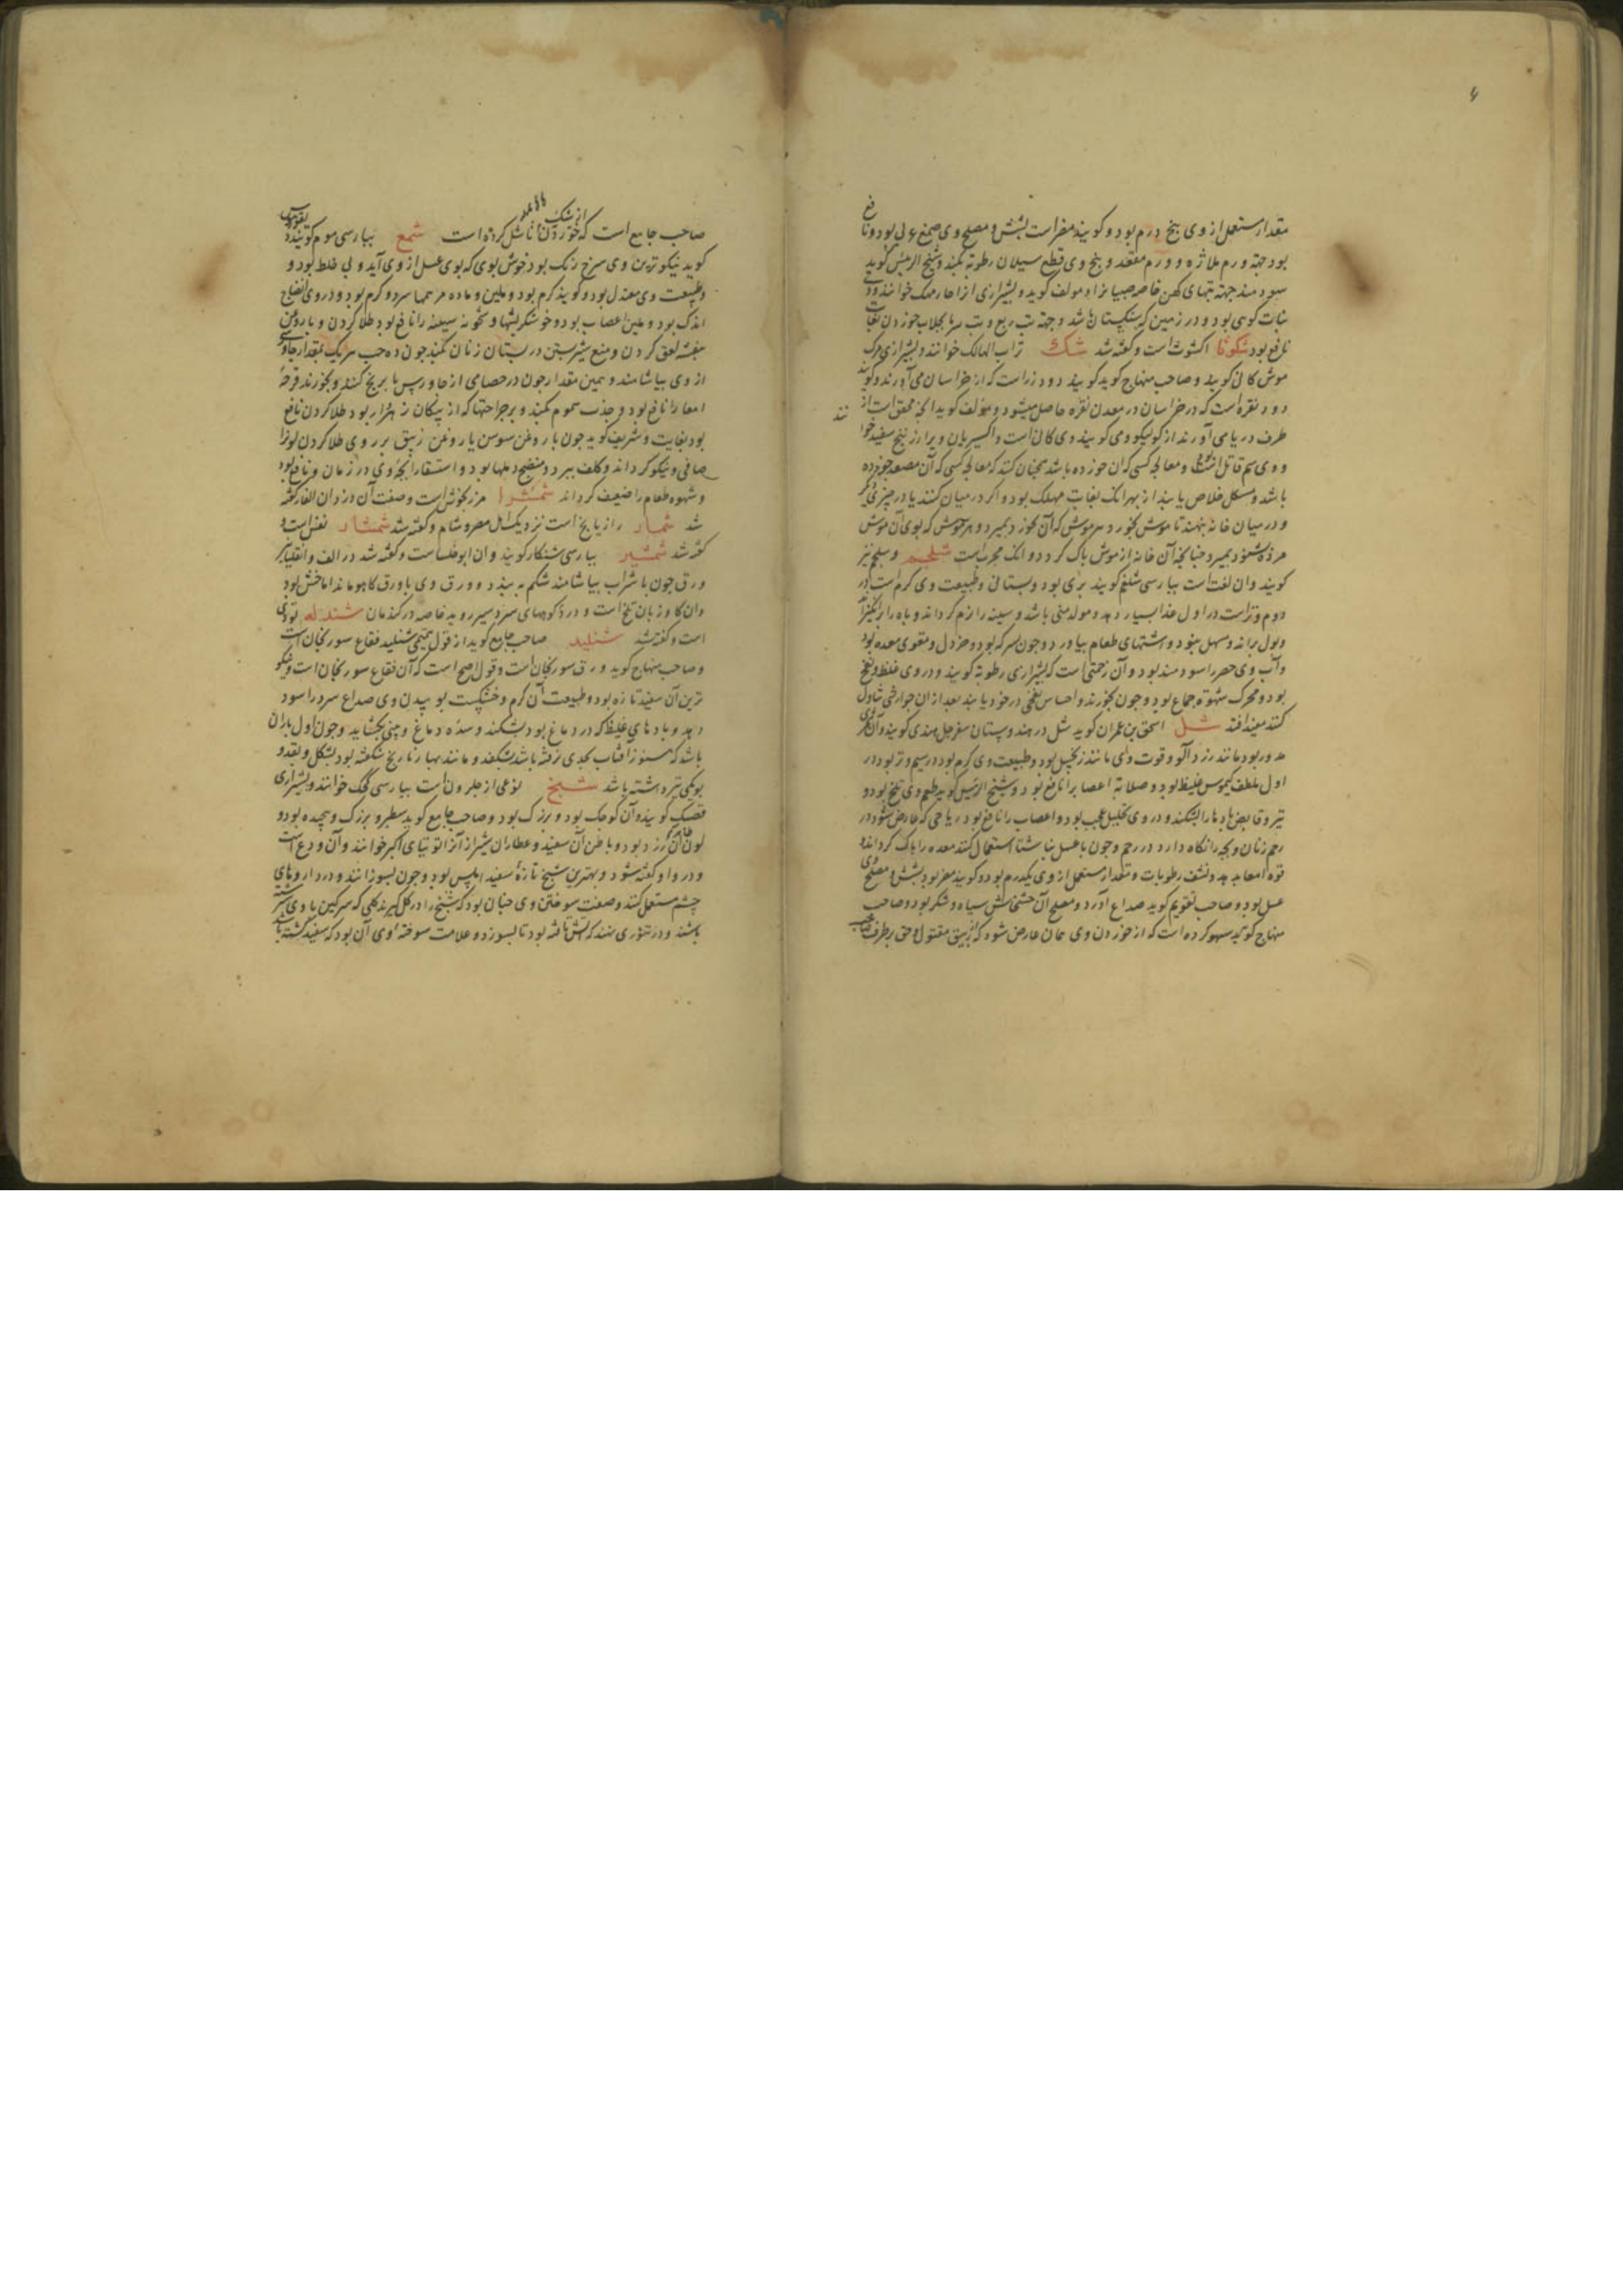 مقدار مستعمل از وی بیخ درم بود و گویند مضر است بشش و مصلح وی صمغ عربی بود و نافع
بود جهة ورم ملازه و ورم مقعد و بیخ وی قطع سیلان رطوبة بکند و شیخ الرئیس گوید
سودمند جهة تبهای کهن خاصه صبیانرا و مولف گوید و بشیرازی انرا خوانند و وی
نبات کوهی بود و در زمین که سنگستان باشد و جهة تب ربع و تب خوردن بغایت
نافع بود شکوثا اکشوث است و گفته شد شک تراب الهالک خوانند و بشیرازی مرک
موش کانی گویند و صاحب منهاج گوید گویند دود زراست که از خراسان می آورند و گویند
دود نقره است که در خراسان در معدن نقره حاصل میشود و مولف گوید انچه محقق است از
طرف دریا می آورند از و وی گویند وی کانی است و اکسیریان ویرا زرنیخ سفید خوانند
و وی سم قاتل است و معالجه کسی که ان خورده باشد همچنان کنند که معالجه کسی که آن مصعد خورده
باشد و مشکل خلاص یابند از بهر انک بغایت مهلک بود و اگر در میان کنند یا در چیزی دیگر
و در میان خانه بنهند تا موش بخورد و هر موش که آن بخورد بمیرد و هر موش که بوی آن موش
مرده شنود بمیرد چنانچه آن خانه از موش پاک گردد و انک مجرب است شلجم و سلجم نیز
گویند وان لفت است بپارسی شلغم گویند بری بود و بستانی و طبیعت وی گرم است در
دوم و تر است در اول غذا بسیار دهد و مولد منی باشد و سینه را نرم گرداند و باه را برانگیزاند
و بول براند و سهل بود و اشتهای طعام بیاورد و چون بسرکه بود و خردل و مقوی معده بود
و آب وی حصر را سودمند بود و آن زحمتی است که بشیرازی رطوبة گویند و در وی غلظ و نفخ
بود و محرک شهوة جماع بود و چون بخورند و احساس نفخی در خود یابند بعد از ان جوارشی تناول
کنند مفید افتد شل اسحق بن عمران گوید شل در هندوستان سفرجل هندی گویند و آن ثمری
مدور بود مانند زردآلو و قوت وی مانند زنجبیل بود و طبیعت وی گرم بود در سیم و تر بود در
اول ملطف کیموس غلیظ بود و صلابة اعصابرا نافع بود و شیخ الرئیس گوید طعم وی تلخ بود و
تیز و قابض بادها را بشکند و در وی تحلیل عجب بود و اعصاب را نافع بود ریاحی که عارض شود در
رحم زنان و بچه را نگاه دارد در رحم و چون با عسل بناشتا استعمال کنند معده را پاک گرداند و
قوة امعا بدهد و نشف رطوبات و مقدار مستعمل از وی یکدرم بود و گویند مضر بود بشش و مصلح وی
عسل بود و صاحب تقویم گوید صداع آورد و مصلح آن خشخاش سیاه و شکر بود و صاحب
منهاج گوید سهو کرده است که از خوردن وی همان عارض شود که از زیبق مقتول و حق بطرف صاحب
صاحب جامع است که خوردن از شک نا شل کرده است شمع بپارسی موم گویند و
گوید نیکوترین وی سرخ رنک بود خوش بوی که بوی عسل از وی آید و بی غلط بود و
و طبیعت وی معتدل بود و گویند گرم بود و ملین و ماده مرهمها سرد و گرم بود و در وی انضاج
اندک بود و ملین اعصاب بود و خشکریشها و خشونة سینه را نافع بود طلا کردن و با روغن
بنفشه لعق کردن و منع شیر بستن در پستان زنان بکند چون ده حب هر یک بمقدار جاورسی
از وی بیاشامند و همین مقدار چون در حصامی از جاورس یا برنج کنند و بخورند قرحه
امعا را نافع بود و جذب سموم بکند و بر جراحتها که از پیکان زهردار بود طلا کردن نافع
بود بغایت و شریف گوید چون با روغن سوسن یا روغن زنبق بر روی طلا کردن لونرا
صافی و نیکو گرداند و کلف ببرد و منضج دملها بود و استفراغ وی در زمان و نافع بود
و شهوه طعام را ضعیف گرداند شمشرا مرزنجوش است و صفت آن در ذان الفار گفته
شد شمار رازیانج است نزدیک اهل مصر و شام و گفته شد شمشار بقس است و
گفته شد شمشیر بپارسی شنکار گویند وان ابوخلسا است و گفته شد در الف و انقلیا نیز
ورق چون با شراب بیاشامند شکم ببندد و ورق وی با ورق کاهو ماند اما خشن بود
وان گاوزبان تلخ است و در کوههای سردسیر روید خاصه در کندمان شندله تودری
است و گفته شد شنبلید صاحب جامع گوید از قول تمیمی شنبلید فقاع سورنجان است
و صاحب منهاج گوید ورق سورنجان است و قول اصح است که آن فقاع سورنجان است و نیکو
ترین آن سفید تازه بود و طبیعت آن گرم و خشکست بوییدن وی صداع سرد را سود
دهد و بادهای غلیظ که در دماغ بود بشکند و سده دماغ و بینی بگشاید و چون اول باران
باشد که هنوز آفتاب بجدی نرفته باشد بشکفد و مانند بهار نارنج شکفته بود بشکل و بقد و
بویکی تیز داشته باشد شیخ نوعی از حلزون است بپارسی گجک خوانند و بشیرازی
گویند و آن کوچک بود و بزرگ بود و صاحب جامع گوید سطبر و بزرک و پیچیده بود و
لون ظاهر آن زرد بود و باطن آن سفید و عطاران شیراز آنرا توتیای اکبر خوانند و آن ودع است
و در واو گفته شود و بهترین شیخ تازه سفید املس بود و چون بسوزانند و در داروهای
چشم مستعمل کنند و صفت سوختن وی چنان بود که شیخ را در گل گیرند گلی که سرگین با وی سرشته
باشند و در تنوری نهند که آتش تافته بود تا بسوزد و علامت سوخته وی آن بود که سفید گشته باشد